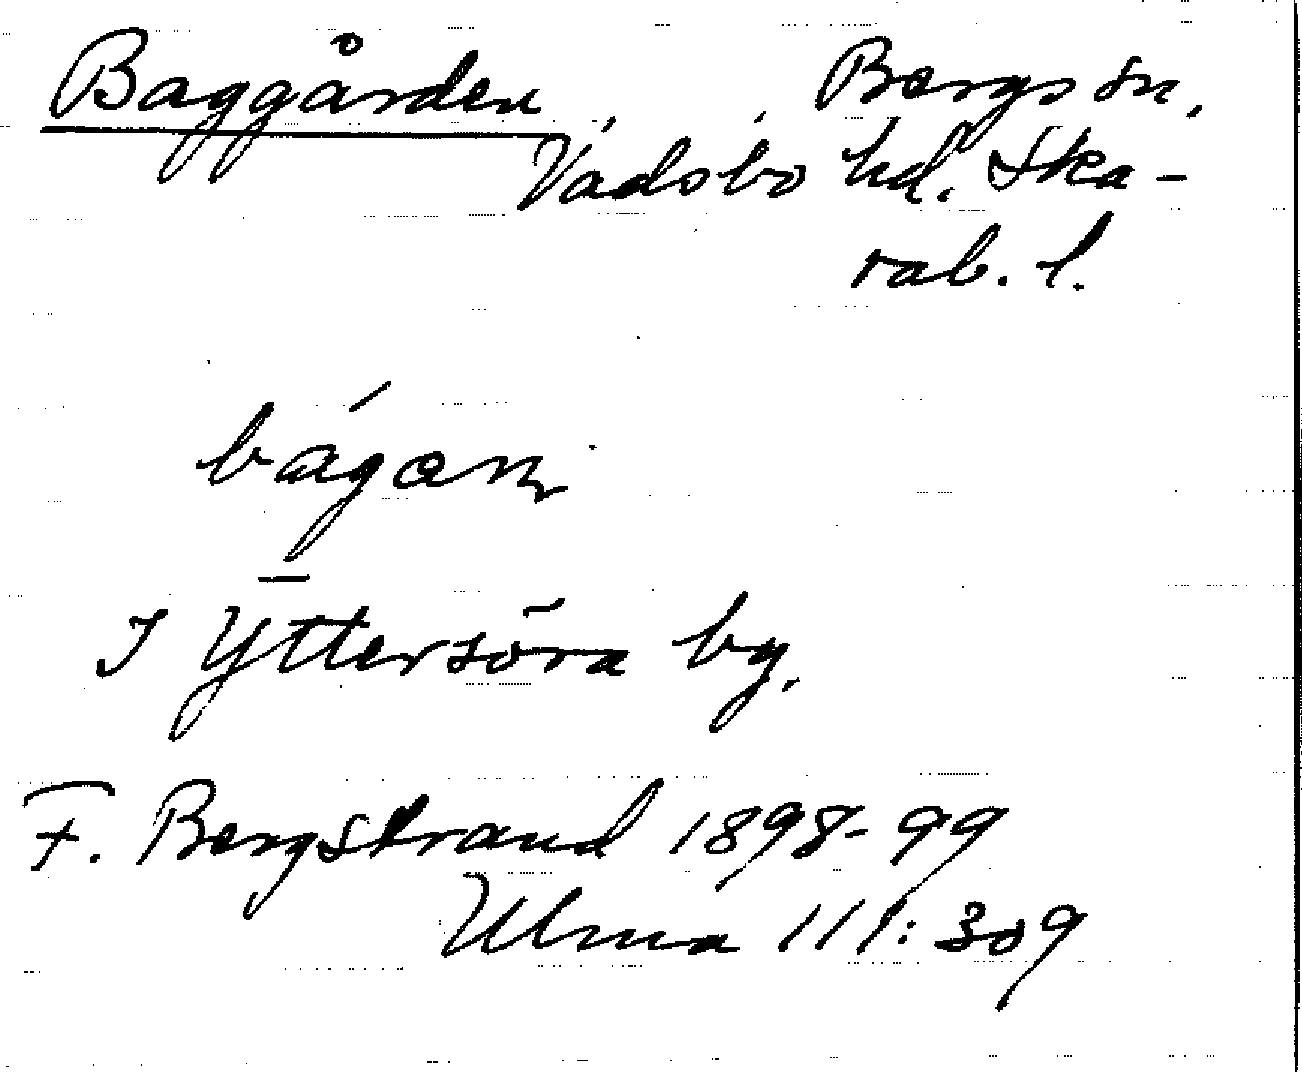 Baggården Bergs sn,
Vadsbo hd. Ska-
rab. l.
I Yttersöra by.
F. Bergstrand 1898-99
Ulma 111:309